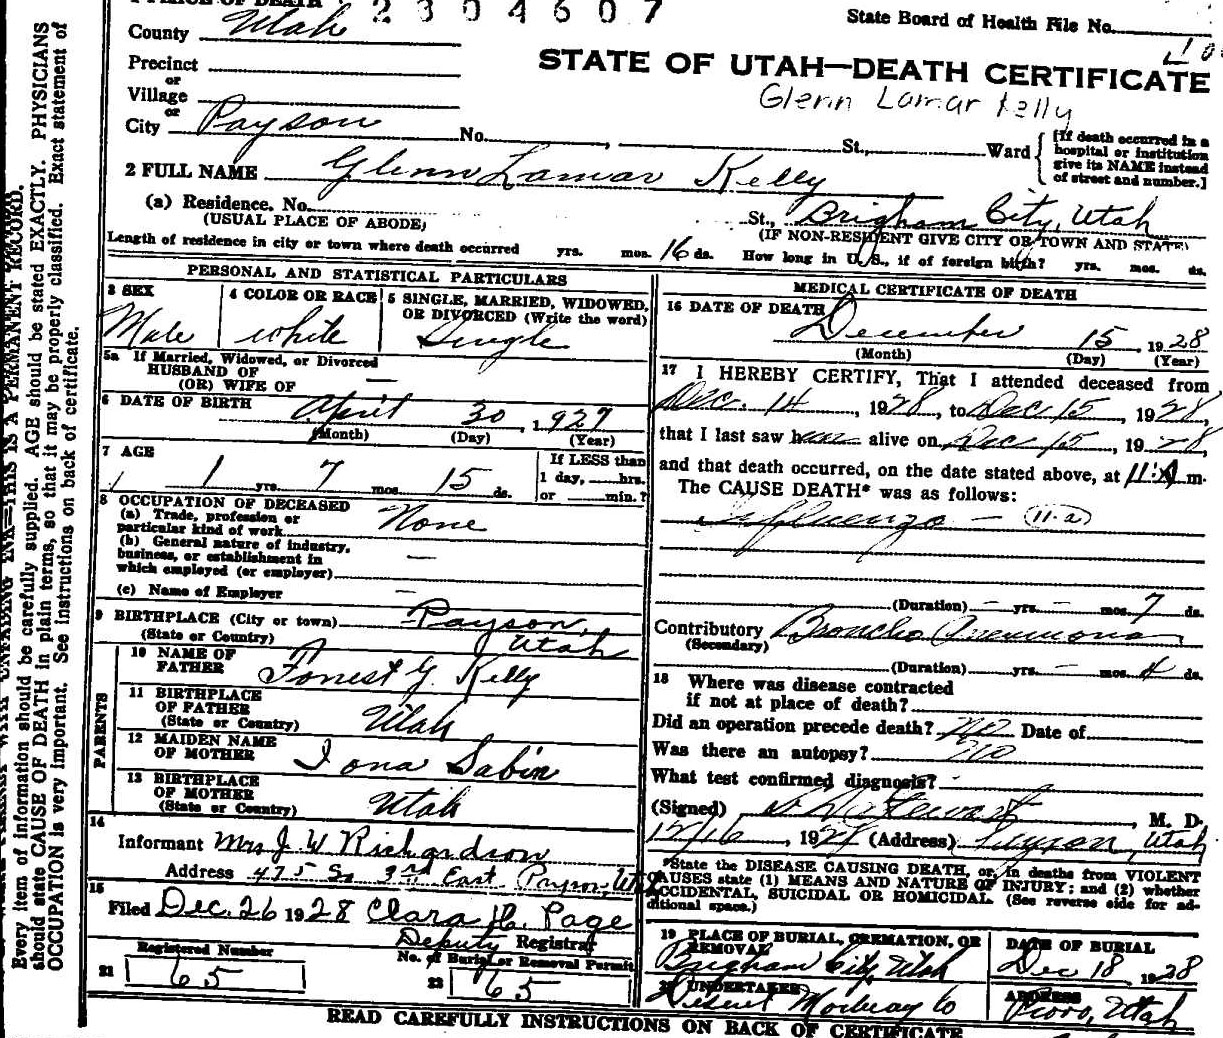 1 PLACE OF DEATH 2304607
State Board of Health File No.
County Utah
STATE OF UTAH—DEATH CERTIFICATE
Glenn Lamar Kelly
Precinct
or
Village
or
City Payson No. , St., Ward
[If death occurred in a hospital or institution give its NAME instead of street and number.]
2 FULL NAME Glenn Lamar Kelly
(a) Residence. No. St., Brigham City, Utah
(USUAL PLACE OF ABODE) (IF NON-RESIDENT GIVE CITY OR TOWN AND STATE)
Length of residence in city or town where death occurred yrs. mos. 16 ds. How long in U.S., if of foreign birth? yrs. mos. ds.
PERSONAL AND STATISTICAL PARTICULARS
3 SEX Male
4 COLOR OR RACE white
5 SINGLE, MARRIED, WIDOWED, OR DIVORCED (Write the word) Single
5a If Married, Widowed, or Divorced
HUSBAND OF
(OR) WIFE OF —
6 DATE OF BIRTH April 30, 1927
(Month) (Day) (Year)
7 AGE 1 yrs. 7 mos. 15 ds.
If LESS than 1 day, hrs. or min.?
8 OCCUPATION OF DECEASED
(a) Trade, profession or particular kind of work None
(b) General nature of industry, business, or establishment in which employed (or employer) —
(c) Name of Employer —
9 BIRTHPLACE (City or town) Payson,
(State or Country) Utah
PARENTS
10 NAME OF FATHER Forrest G. Kelly
11 BIRTHPLACE OF FATHER (State or Country) Utah
12 MAIDEN NAME OF MOTHER Iona Sabin
13 BIRTHPLACE OF MOTHER (State or Country) Utah
14
Informant Mrs J. W Richardson
Address 475 So 3rd East Payson, Utah
15
Filed Dec. 26 1928 Clara H. Page
Deputy Registrar
Registered Number
21 65
No. of Burial or Removal Permit
22 65
MEDICAL CERTIFICATE OF DEATH
16 DATE OF DEATH December 15, 1928
(Month) (Day) (Year)
17 I HEREBY CERTIFY, That I attended deceased from
Dec. 14, 1928, to Dec 15, 1928,
that I last saw him alive on Dec 15, 1928,
and that death occurred, on the date stated above, at 11:A m.
The CAUSE DEATH* was as follows:
Influenza — (11-a)
(Duration) — yrs. — mos. 7 ds.
Contributory Broncho Pneumonia
(Secondary)
(Duration) yrs. — mos. 4 ds.
18 Where was disease contracted
if not at place of death?
Did an operation precede death? No Date of
Was there an autopsy? No
What test confirmed diagnosis? -
(Signed) Stewart, M. D.
12/16, 1928 (Address) Payson, Utah
*State the DISEASE CAUSING DEATH, or, in deaths from VIOLENT
CAUSES state (1) MEANS AND NATURE OF INJURY; and (2) whether
ACCIDENTAL, SUICIDAL OR HOMICIDAL. (See reverse side for additional space.)
19 PLACE OF BURIAL, CREMATION, OR REMOVAL
Brigham City, Utah
DATE OF BURIAL
Dec 18, 1928
20 UNDERTAKER
Deseret Mortuary Co
ADDRESS
Provo, Utah
READ CAREFULLY INSTRUCTIONS ON BACK OF CERTIFICATE
THIS IS A PERMANENT RECORD.
Every item of information should be carefully supplied. AGE should be stated EXACTLY. PHYSICIANS
should state CAUSE OF DEATH in plain terms, so that it may be properly classified. Exact statement of
OCCUPATION is very important. See instructions on back of certificate.